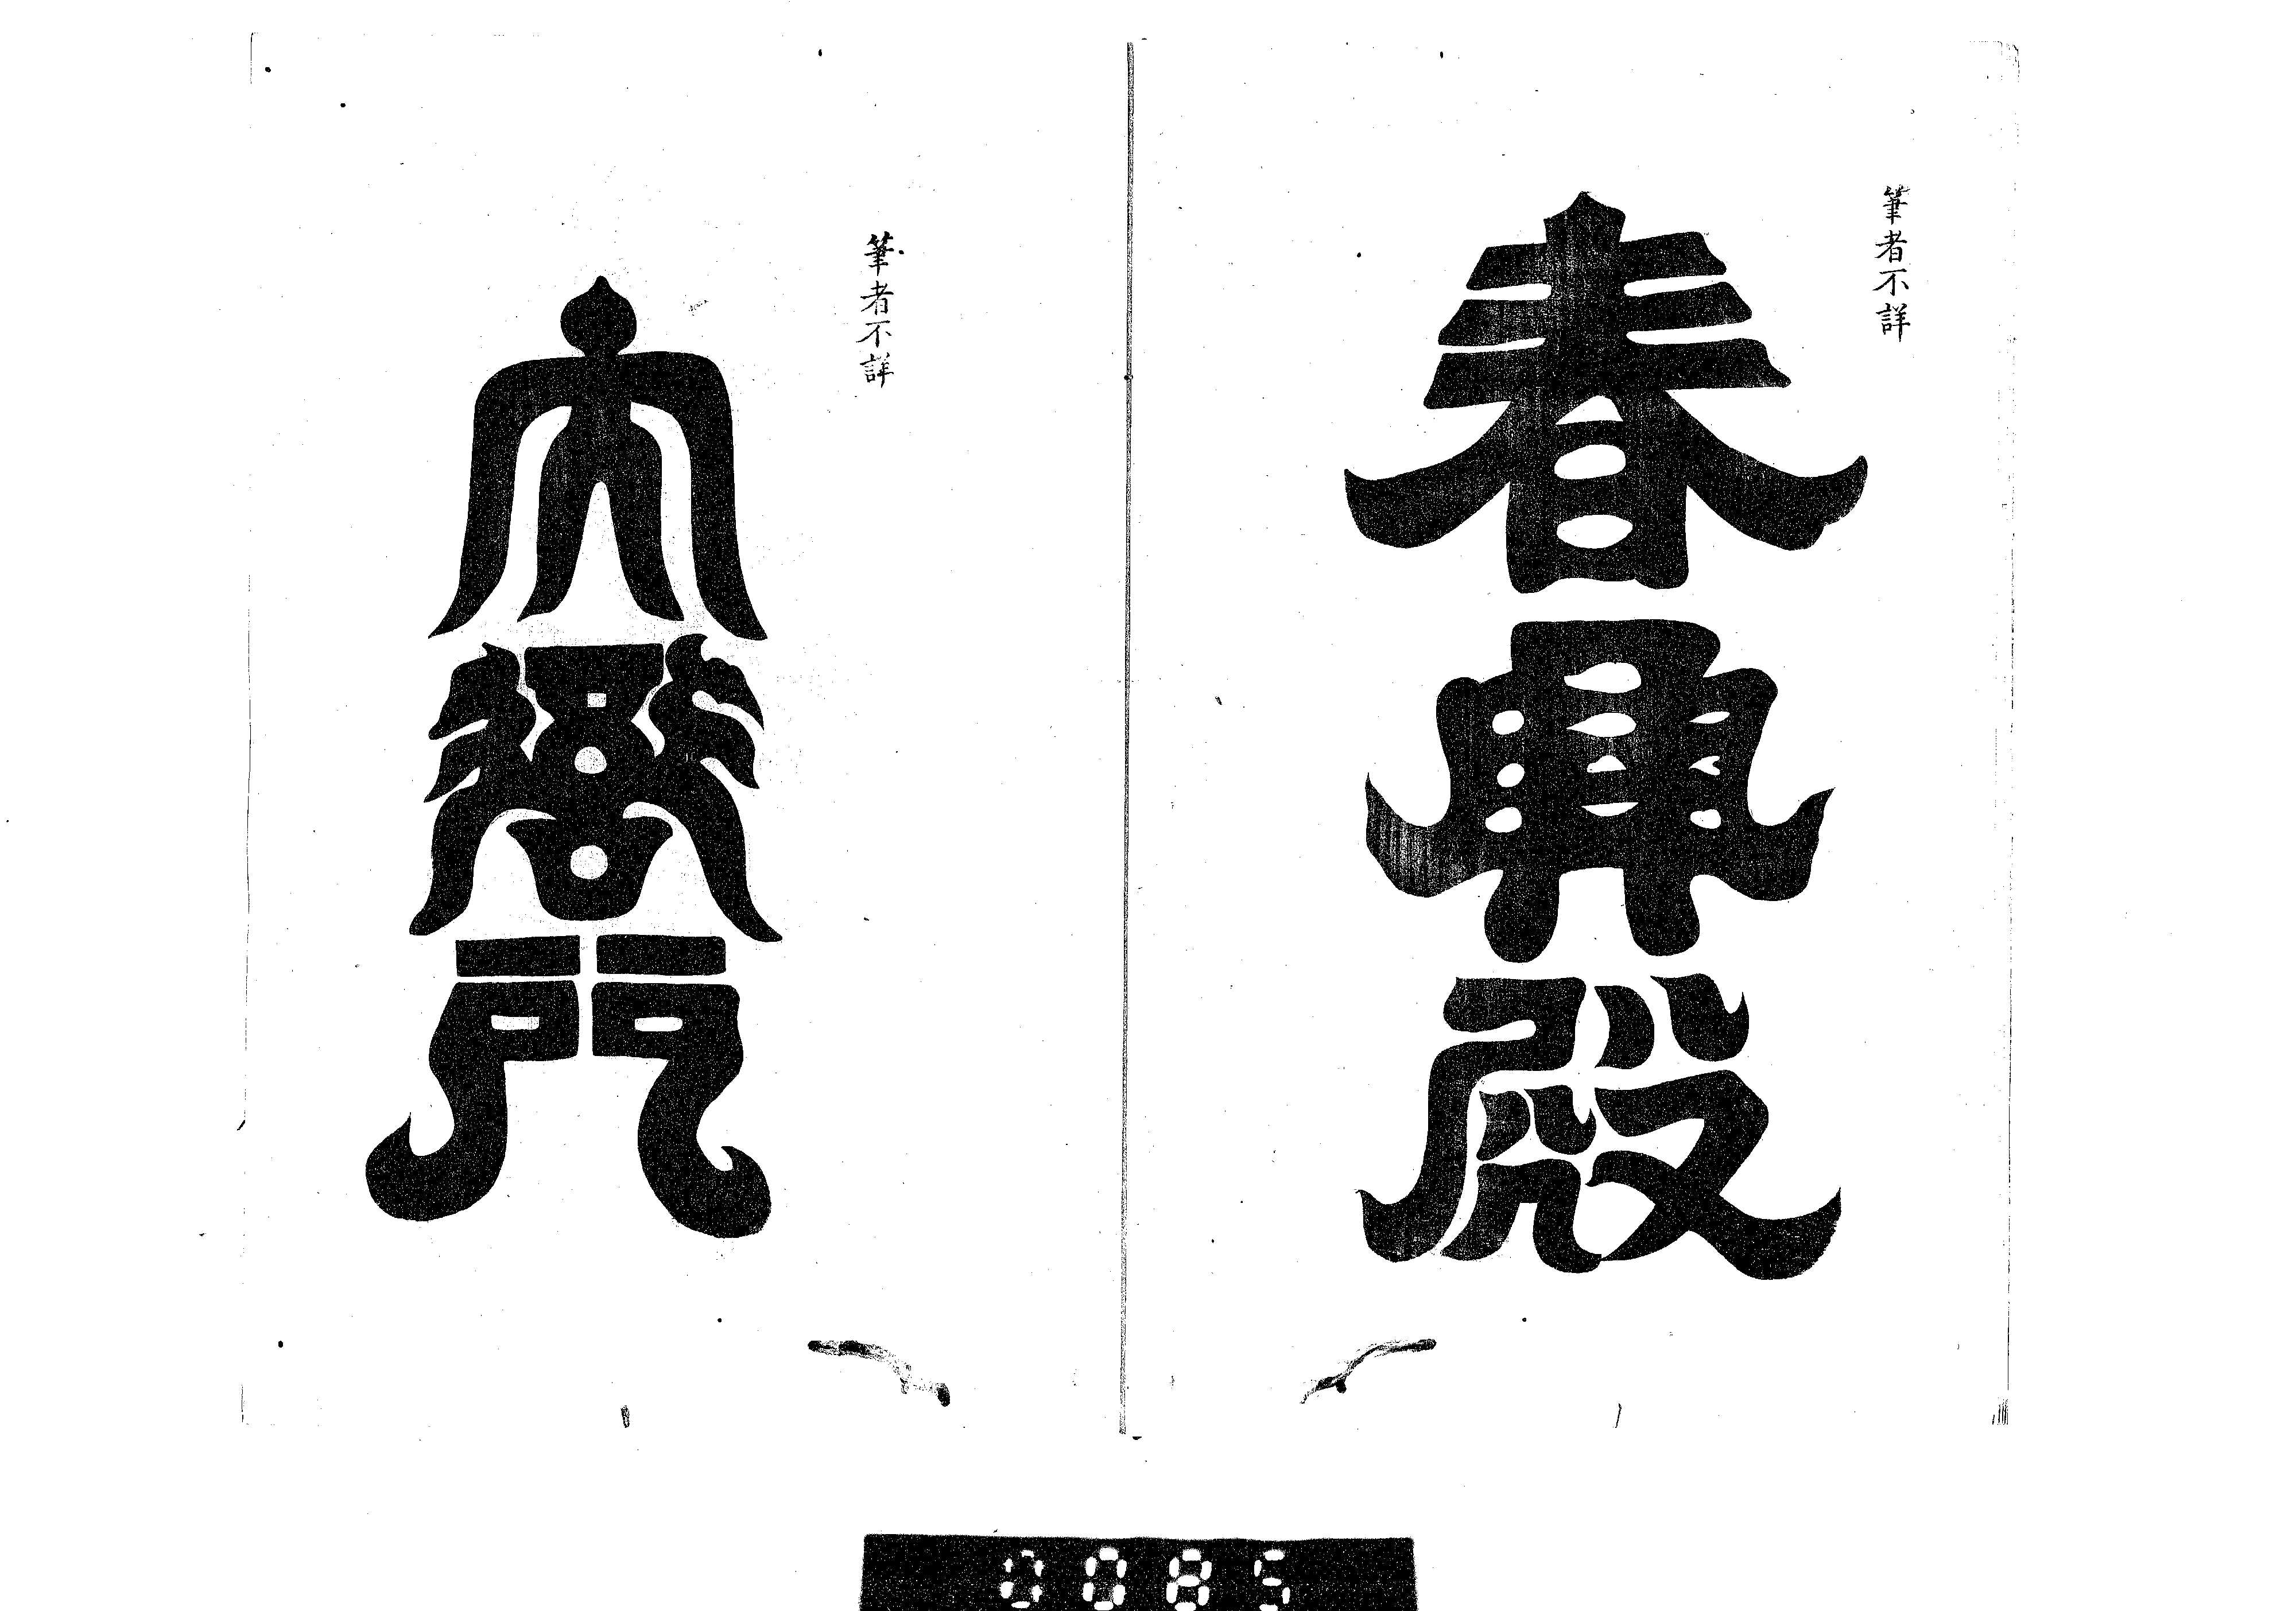 筆者不詳
春興殿
筆者不詳
門
0085